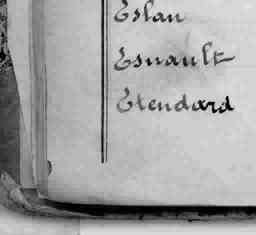 Eslan
Esnault
Etendard